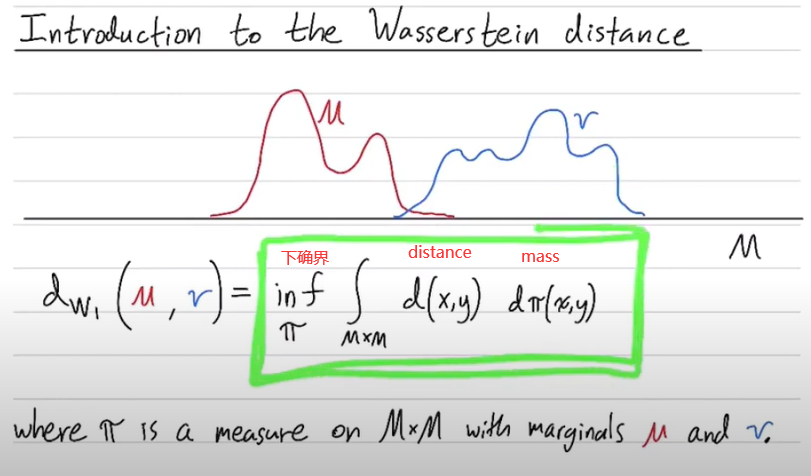 Introduction to the Wasserstein distance
μ
ν
M
下确界 distance mass
d_{W_1} (μ, ν) = inf_π ∫_{M×M} d(x,y) dπ(x,y)
where π is a measure on M×M with marginals μ and ν.